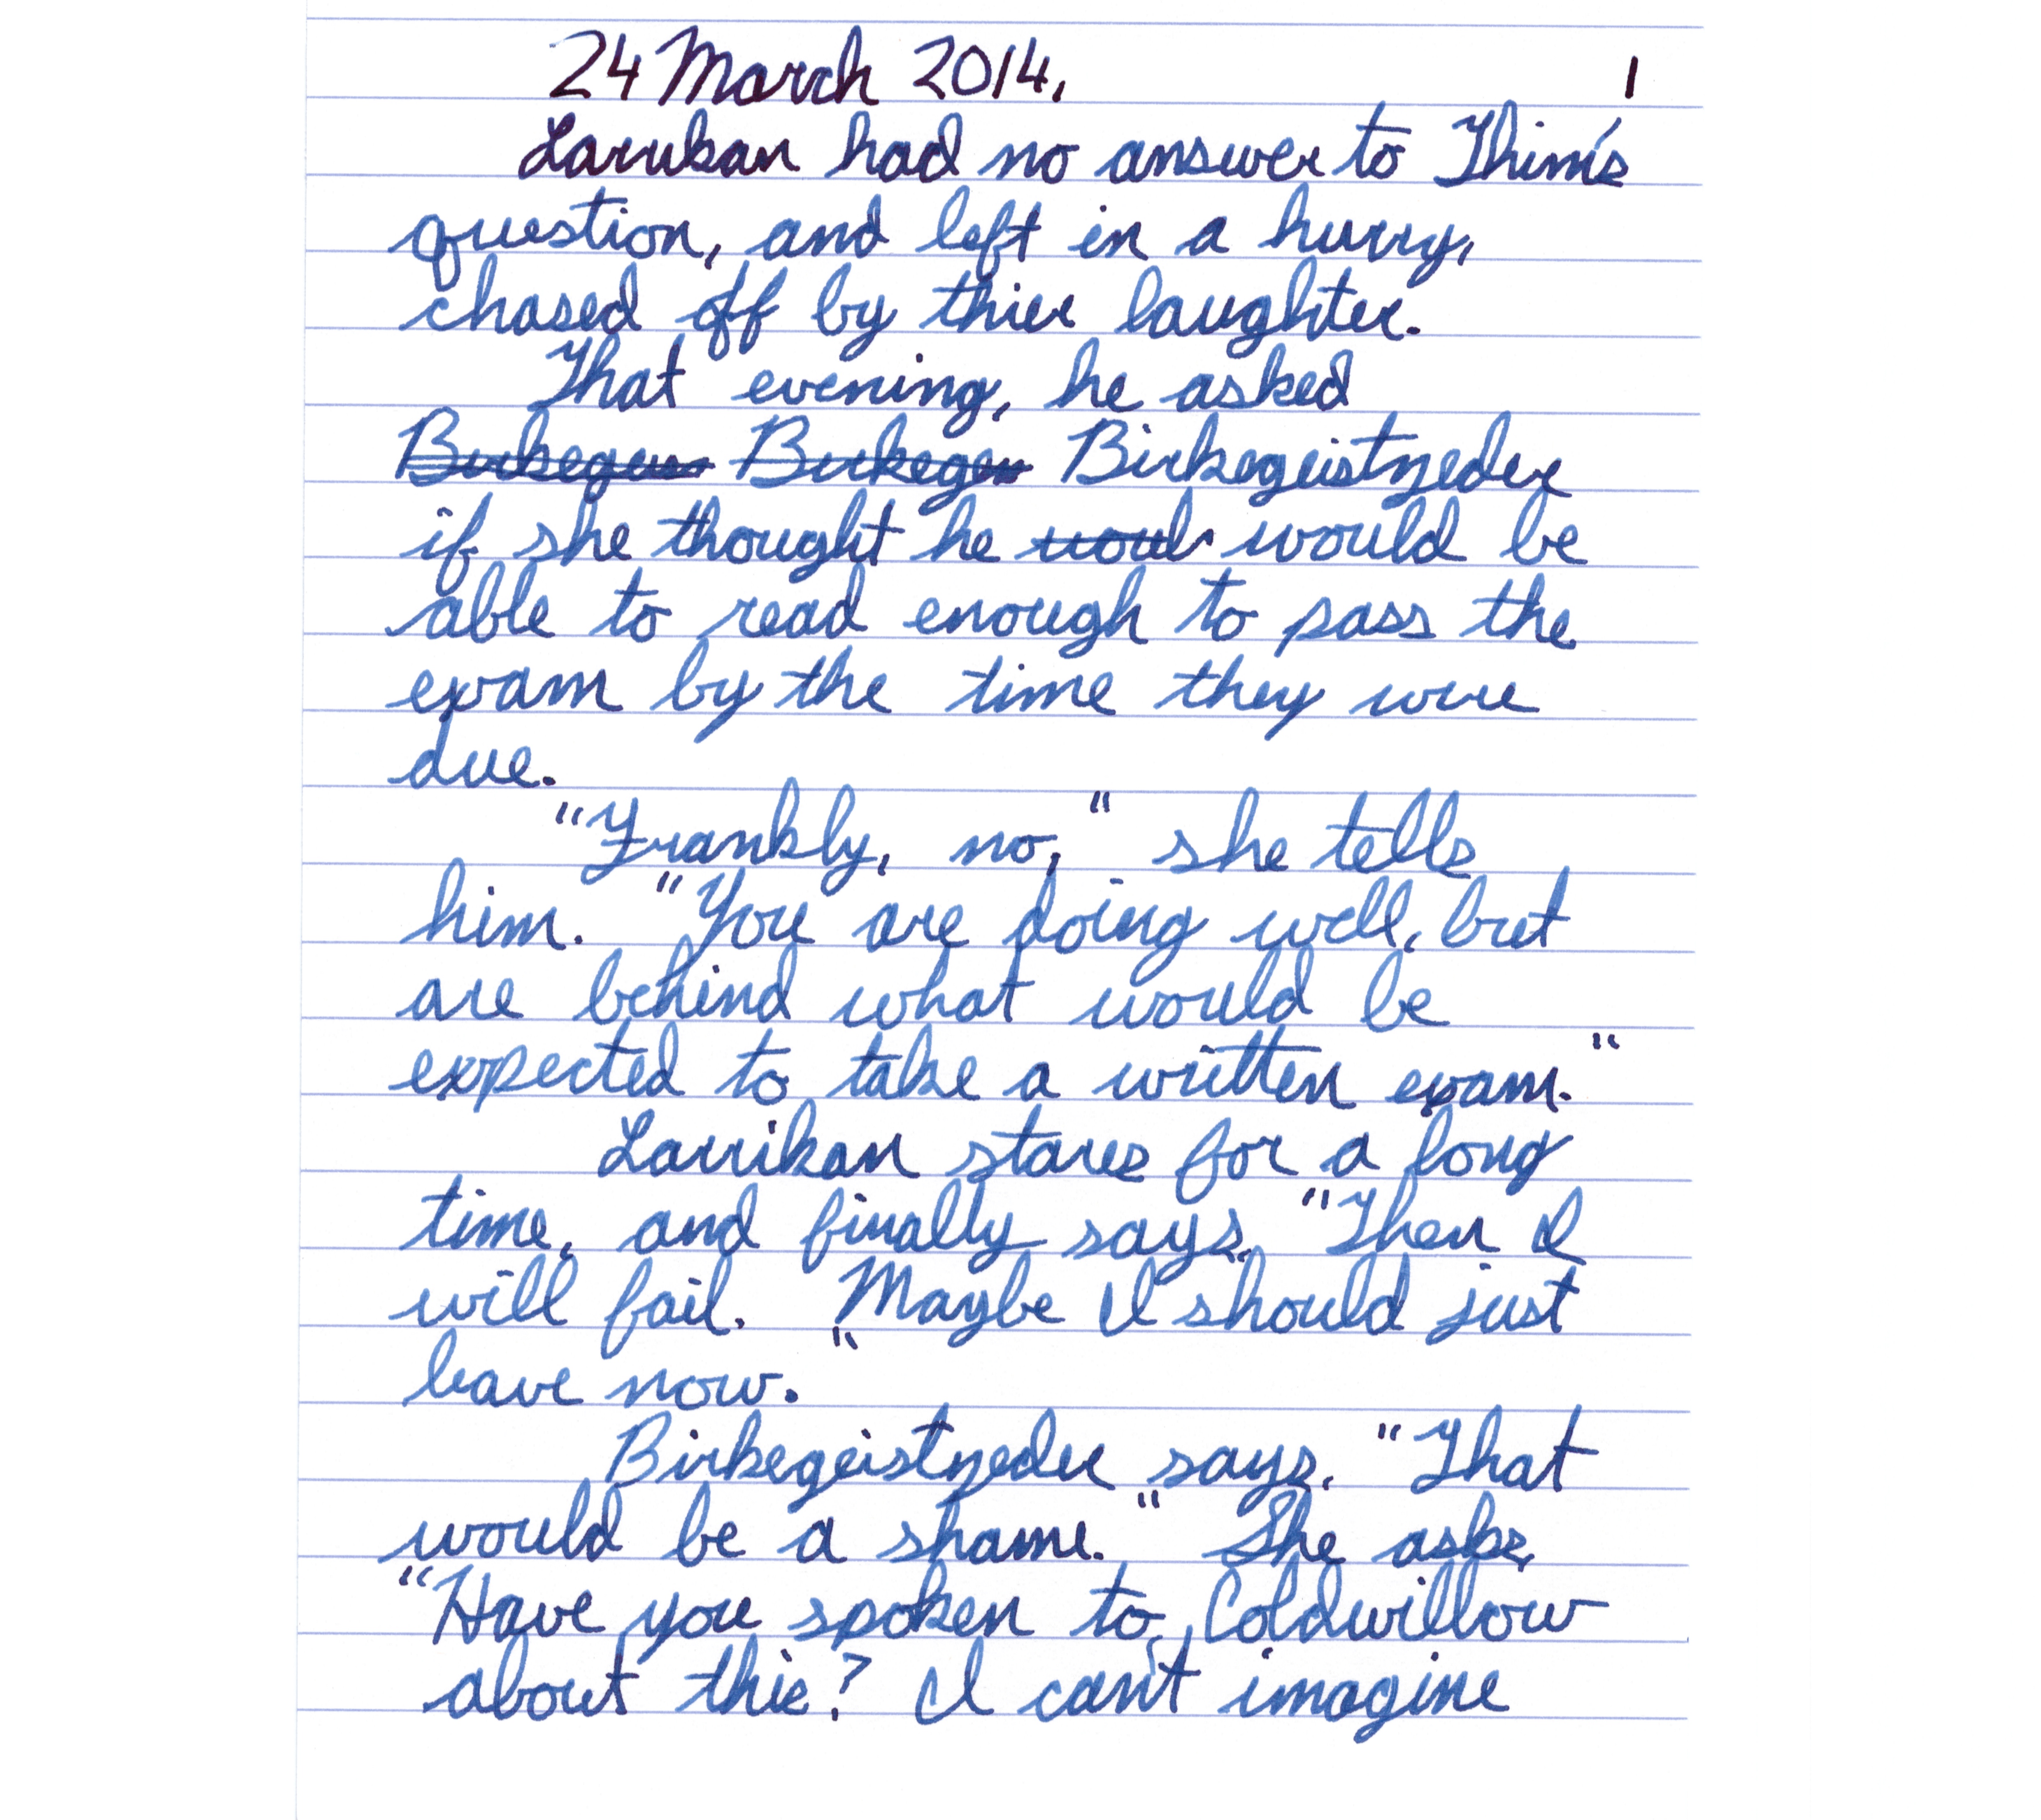 24 March 2014. 1
Larrikan had no answer to Thim's
question, and left in a hurry,
chased off by thier laughter.
That evening, he asked
Birkegeistzeder
if she thought he would be
able to read enough to pass the
exam by the time they were
due.
"Frankly, no," she tells
him. "You are doing well, but
are behind what would be
expected to take a written exam."
Larrikan stares for a long
time, and finally says, "Then I
will fail. Maybe I should just
leave now."
Birkegeistzeder says. "That
would be a shame." She asks,
"Have you spoken to Coldwillow
about this? I can't imagine